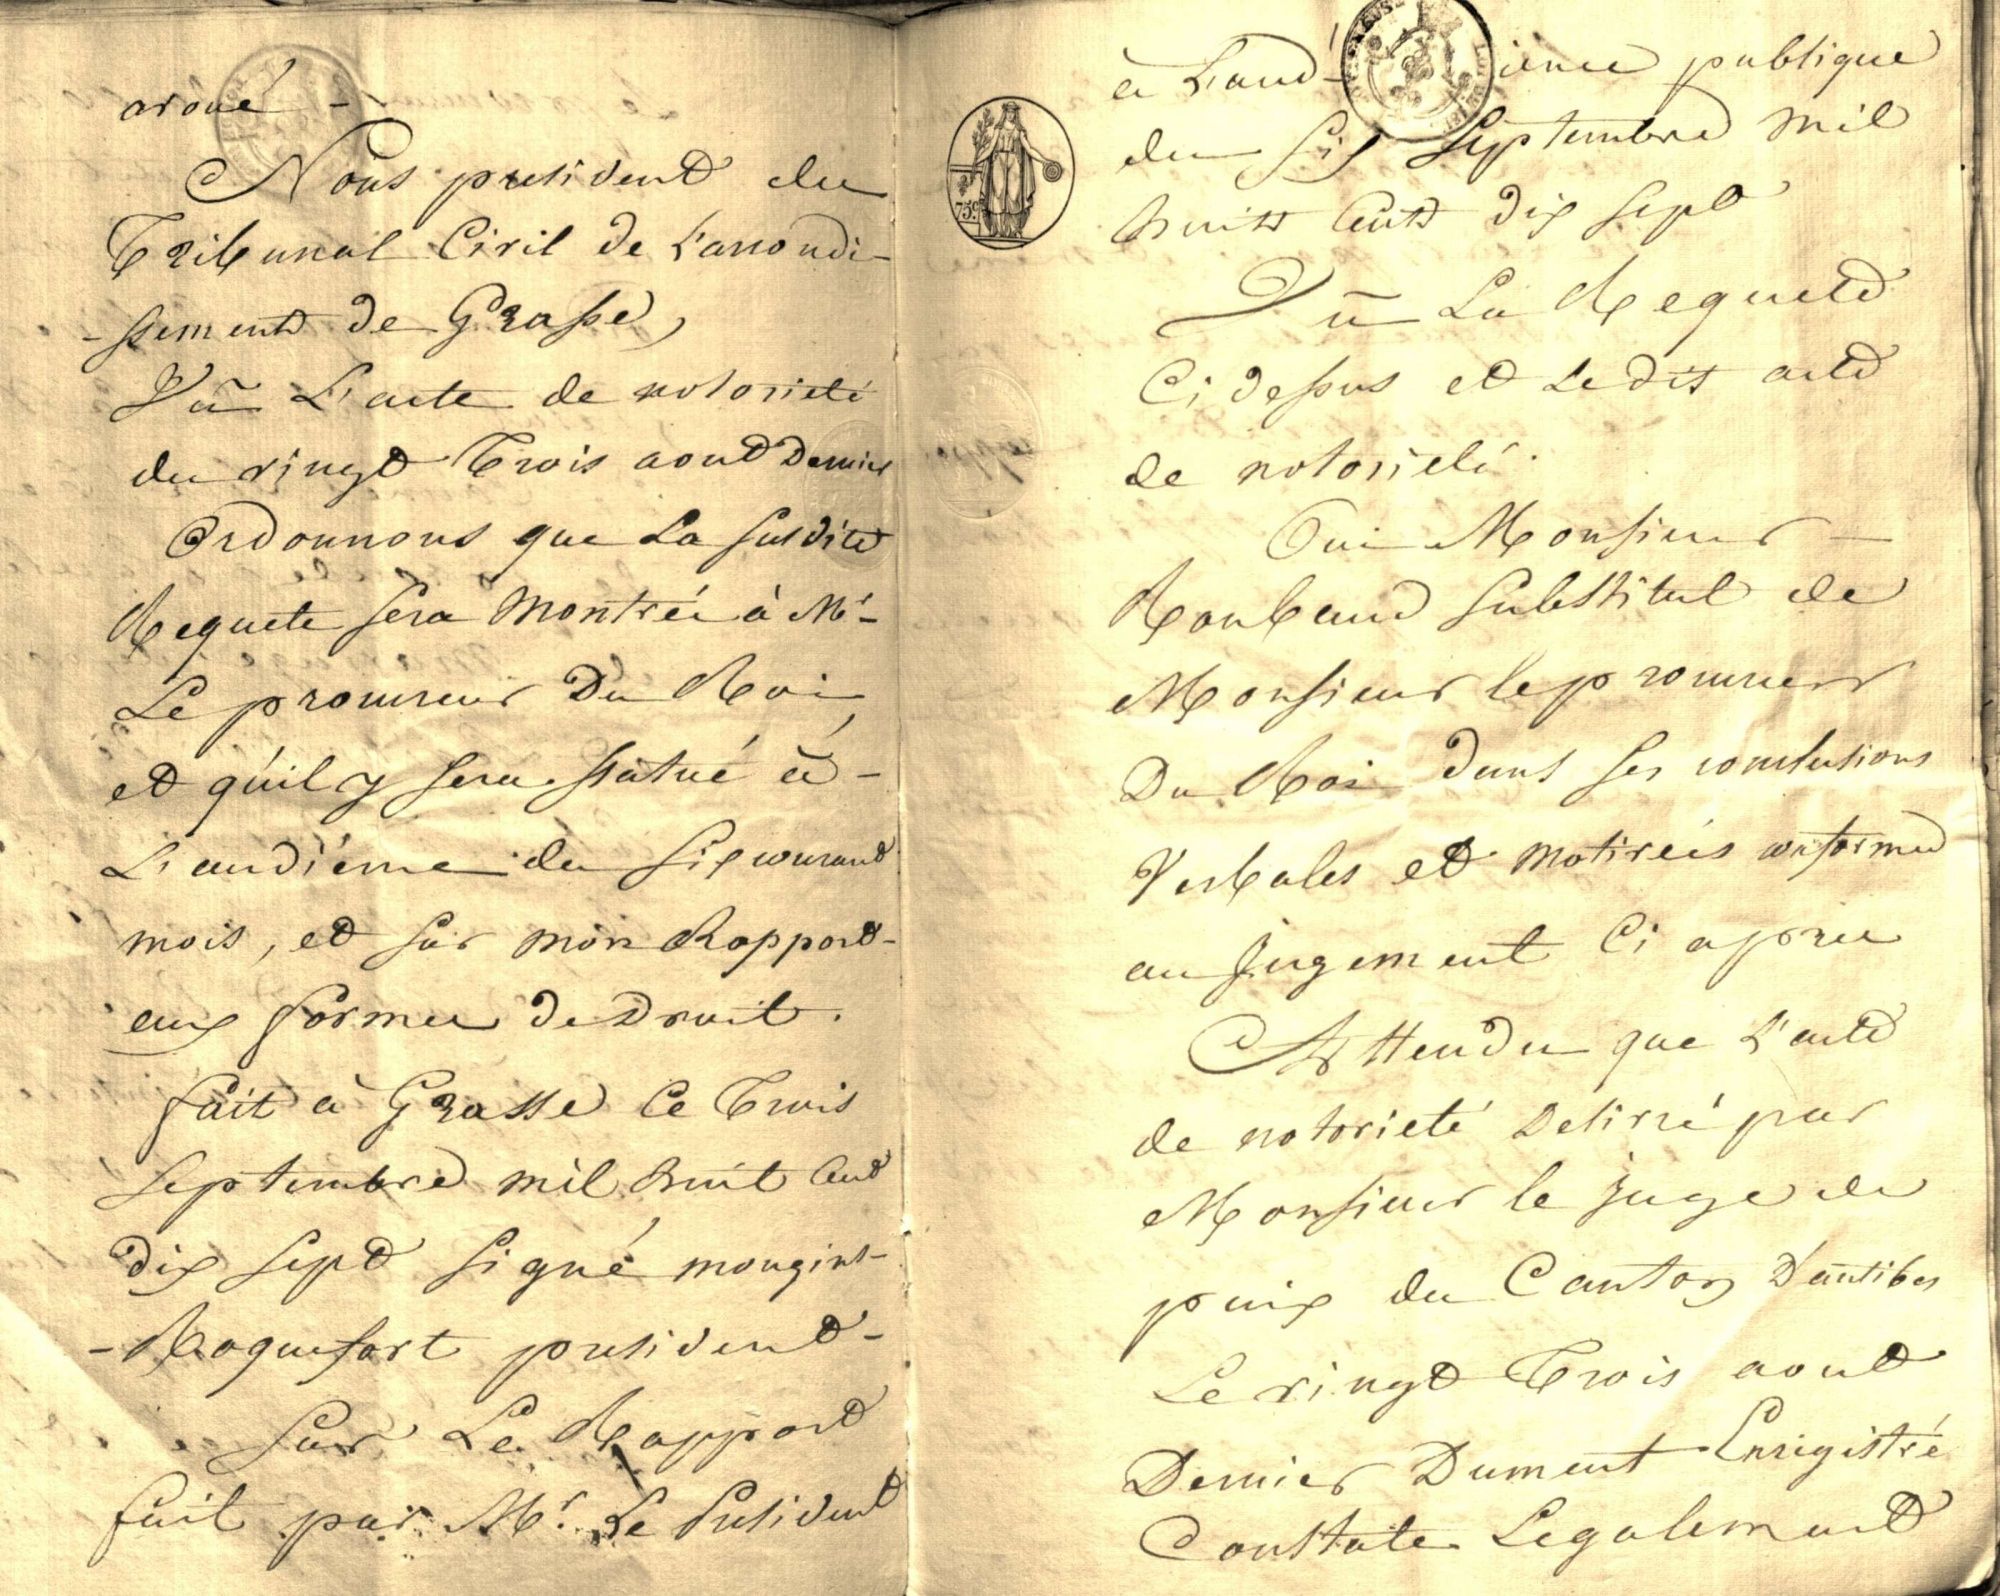 avoué -
Nous president du
Tribunal Civil de L'arrondi-
-ssement de Grasse,
Vû L'acte de notorieté
du vingt Trois aout Dernier
Ordonnons que La susdite
Requete sera Montrée à Mr.
Le procureur Du Roi,
et qu'il y sera statué à -
L'audience du six courant
mois, et sur mon Rapport-
aux formes de Droit.
fait à Grasse Ce Trois
septembre mil huit Cent
dix sept signé mougins-
-Roquefort president-
Sur Le Rapport
fait par Mr. Le President
à L'aud-ience publique
du six septembre mil
huit Cent dix sept
Vû La Requete
Ci dessus et Le dit acte
de notorieté.
Oui Monsieur -
Roubaud substitut de
Monsieur le procureur
Du Roi dans ses conclusions
Verbales et motivées conformes
au jugement Ci apres
Attendu que L'acte
de notorieté Délivré par
Monsieur le juge de
paix du Canton D'antibes
Le vingt Trois aout
Dernier Dument Enregistré
Constate Legalement
75c